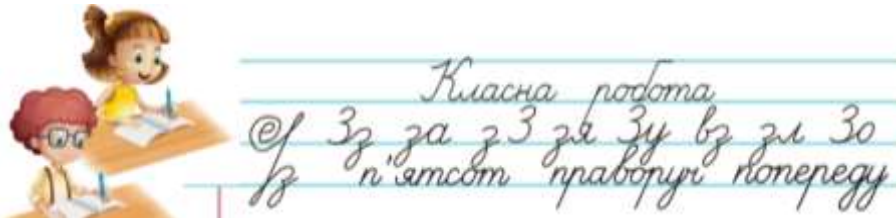 Класна робота
Зз за зЗ зя Зу вз зл Зо
п'ятсот праворуч попереду